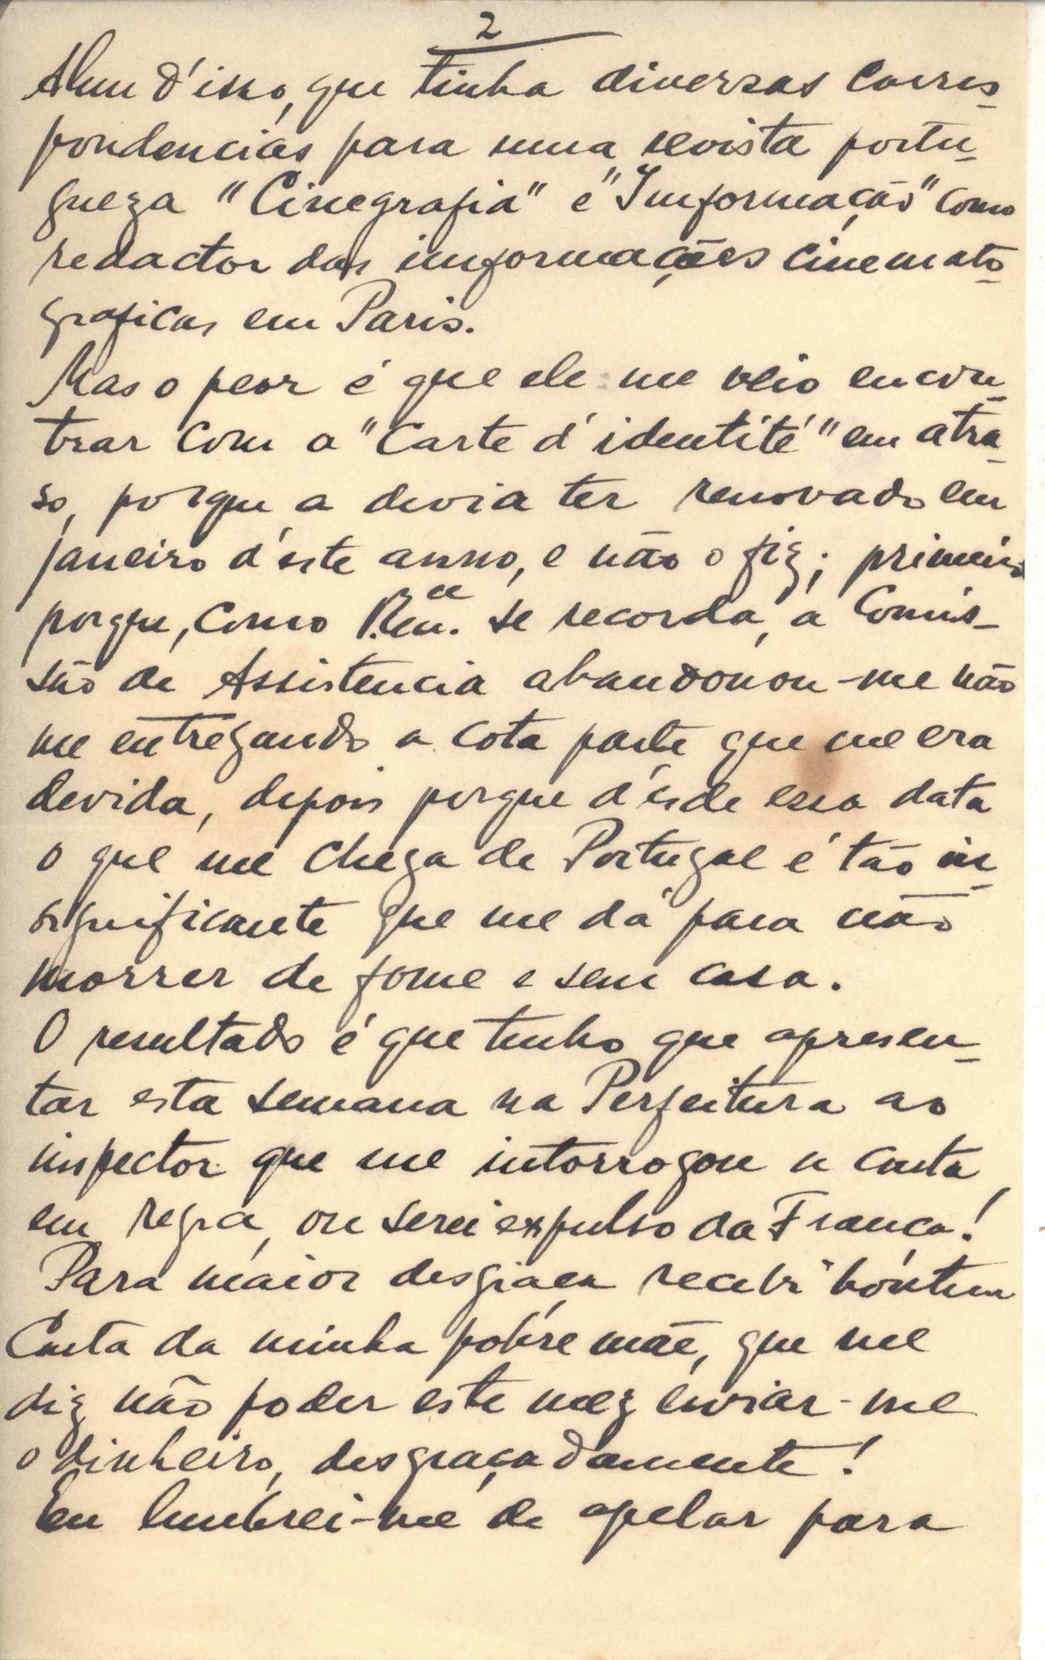 2
Alem d'isso, que tinha diversas corres-
pondencias para uma revista portu-
gueza "Cinegrafia" e "Imformação" como
redactor das imformações cinemato-
graficas em Paris.
Mas o peor é que ele me veio encon-
trar com a "Carte d'identité" em atra-
so, porque a devia ter renovado em
janeiro d'este anno, e não o fiz; primeiro
porque, como se recorda, a Comis-
são de Assistencia abandonou-me não
me entregando a cota parte que me era
devida, depois porque d'esde essa data
o que me chega de Portugal é tão in-
significante que me dá para não
morrer de fome e sem casa.
O resultado é que tenho que apresen-
tar esta semana na Perfeitura ao
inspector que me intorrogou a carta
em regra, ou serei expulso da França!
Para maior desgraça recebi hontem
Carta da minha pobre mãe, que me
diz não poder este mez enviar-me
o dinheiro, desgraçadamente!
Eu lembrei-me de apelar para